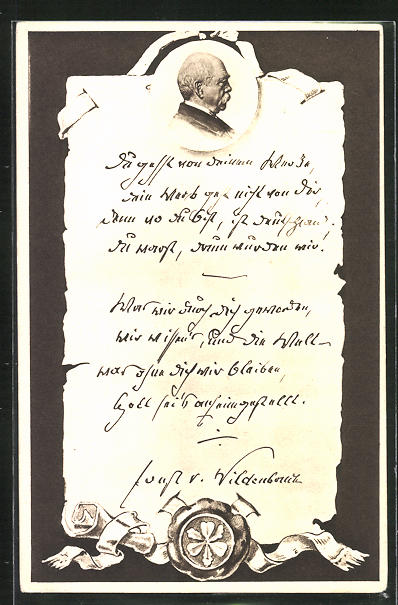 Du gehst von deinem Werke,
Dein Werk geht nicht von dir,
Denn wo du bist, ist Deutschland.
Du warst, drum wurden wir!
Was wir durch dich geworden,
wir wissen's, und die Welt –
was ohne dich wir bleiben,
Gott sei's anheimgestellt.
Ernst v. Wildenbruch